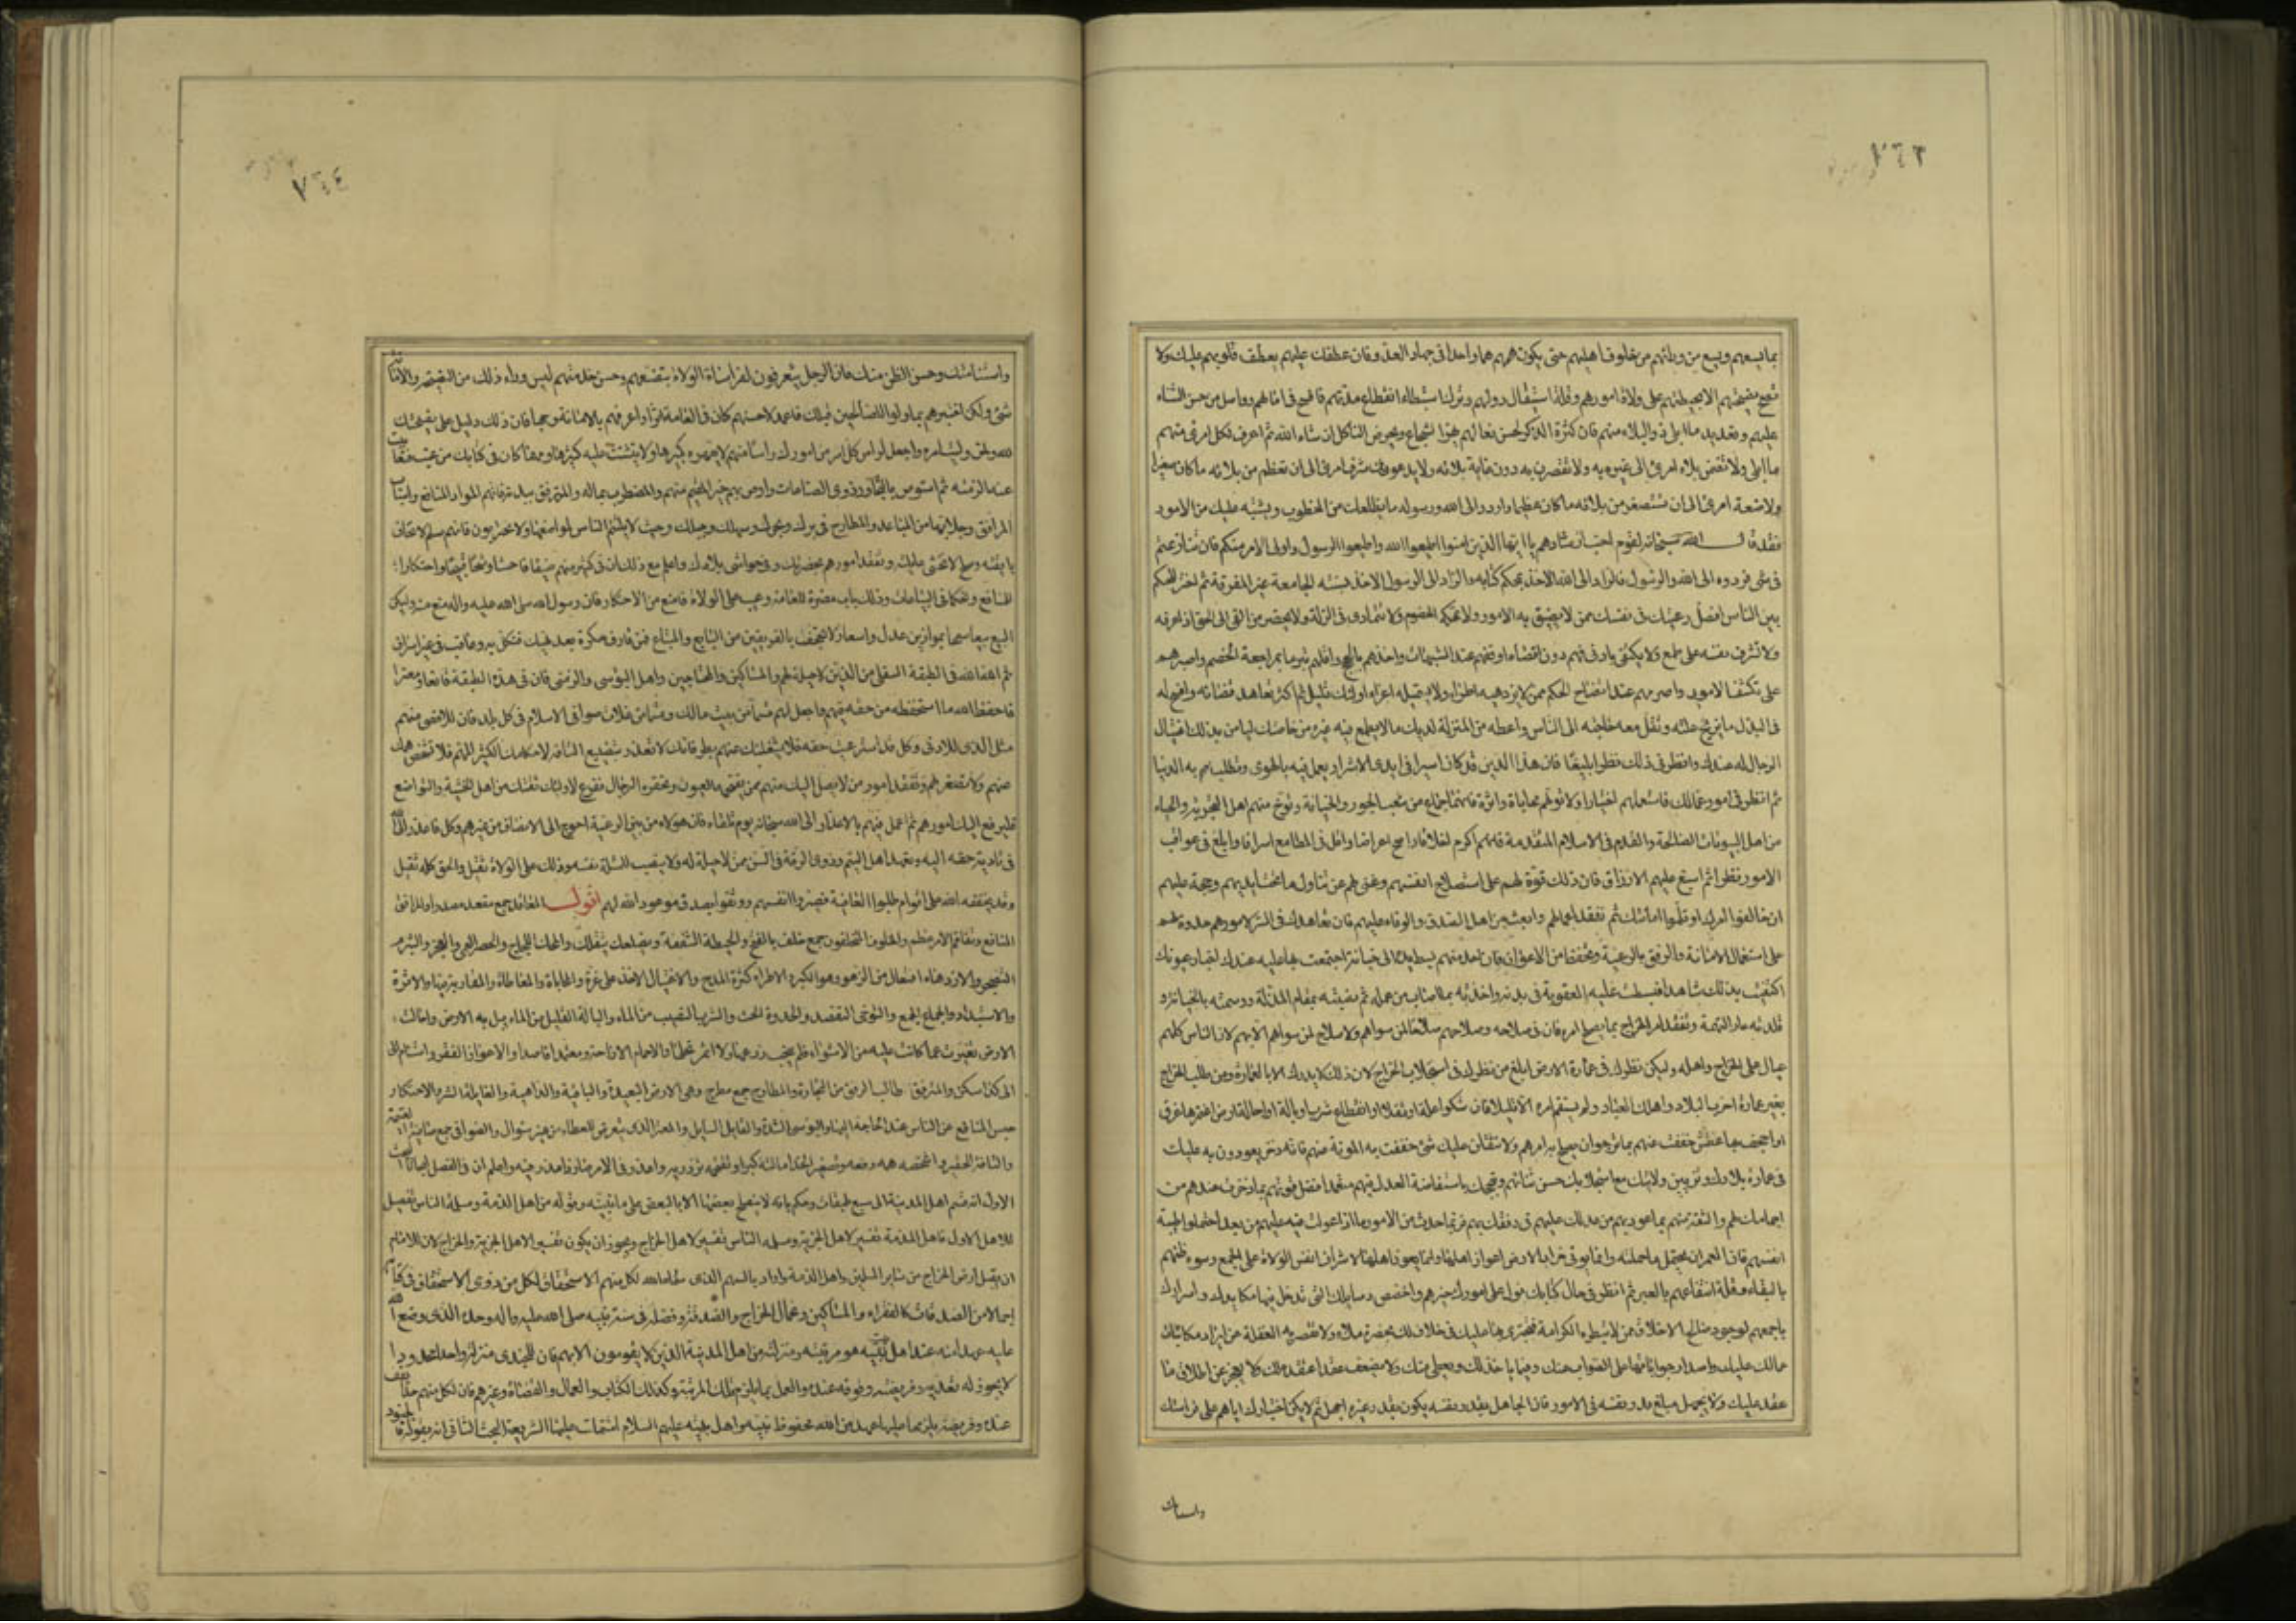 ٧٦٣
بما يسعهم ويسع من ورائهم من خلوف اهليهم حتى يكون همهم هما واحدا فى جهاد العدو فان عطفك عليهم يعطف قلوبهم عليك ولا
تصح نصيحتهم الا بحيطتهم على ولاة امورهم وقلة استثقال دولهم وترك استبطاء انقطاع مدتهم فافسح فى امالهم وواصل من حسن الثناء
عليهم وتعديد ما ابلى ذوو البلاء منهم فان كثرة الذكر لحسن فعالهم تهز الشجاع وتحرض الناكل ان شاء الله ثم اعرف لكل امرئ منهم
ما ابلى ولا تضمن بلاء امرئ الى غيره ولا تقصرن به دون غاية بلائه ولا يدعونك شرف امرئ الى ان تعظم من بلائه ما كان صغيرا
ولا ضعة امرئ الى ان تستصغر من بلائه ما كان عظيما واردد الى الله ورسوله ما يظلعك من الخطوب ويشتبه عليك من الامور
فقد قال الله سبحانه لقوم احب ارشادهم يا ايها الذين امنوا اطيعوا الله واطيعوا الرسول واولى الامر منكم فان تنازعتم
فى شئ فردوه الى الله والرسول فالراد الى الله الاخذ بمحكم كتابه والراد الى الرسول الاخذ بسنته الجامعة غير المفرقة ثم اختر للحكم
بين الناس افضل رعيتك فى نفسك ممن لا يضيق به الامور ولا تمحكه الخصوم ولا يتمادى فى الزلة ولا يحصر من الفئ الى الحق اذا عرفه
ولا تشرف نفسه على طمع ولا يكتفى بادنى فهم دون اقصاه اوقفهم عند الشبهات واخذهم بالحجج واقلهم تبرما بمراجعة الخصم واصبرهم
على تكشف الامور واصرمهم عند اتضاح الحكم ممن لا يزدهيه اطراء ولا يستميله اغراء اولئك قليل ثم اكثر تعاهد قضائه وافسح له
فى البذل ما يزيح علته وتقل معه حاجته الى الناس واعطه من المنزلة لديك ما لا يطمع فيه غيره من خاصتك ليامن بذلك اغتيال
الرجال له عندك وانظر فى ذلك نظرا بليغا فان هذا الدين قد كان اسيرا فى ايدى الاشرار يعمل فيه بالهوى وتطلب به الدنيا
ثم انظر فى امور عمالك فاستعملهم اختبارا ولا تولهم محاباة واثرة فانهما جماع من شعب الجور والخيانة وتوخ منهم اهل التجربة والحياء
من اهل البيوتات الصالحة والقدم فى الاسلام المتقدمة فانهم اكرم اخلاقا واصح اعراضا واقل فى المطامع اسرافا وابلغ فى عواقب
الامور نظرا ثم اسبغ عليهم الارزاق فان ذلك قوة لهم على استصلاح انفسهم وغنى لهم عن تناول ما تحت ايديهم وحجة عليهم
ان خالفوا امرك او ثلموا امانتك ثم تفقد اعمالهم وابعث العيون من اهل الصدق والوفاء عليهم فان تعاهدك فى السر لامورهم حدوة لهم
على استعمال الامانة والرفق بالرعية وتحفظ من الاعوان فان احد منهم بسط يده الى خيانة اجتمعت بها عليه عندك اخبار عيونك
اكتفيت بذلك شاهدا فبسطت عليه العقوبة فى بدنه واخذته بما اصاب من عمله ثم نصبته بمقام المذلة ووسمته بالخيانة و
قلدته عار التهمة وتفقد امر الخراج بما يصلح اهله فان فى صلاحه وصلاحهم صلاحا لمن سواهم ولا صلاح لمن سواهم الا بهم لان الناس كلهم
عيال على الخراج واهله وليكن نظرك فى عمارة الارض ابلغ من نظرك فى استجلاب الخراج لان ذلك لا يدرك الا بالعمارة ومن طلب الخراج
بغير عمارة اخرب البلاد واهلك العباد ولم يستقم امره الا قليلا فان شكوا علة او ثقلا او انقطاع شرب او بالة او احالة ارض اغتمرها غرق
او اجحف بها عطش خففت عنهم بما ترجو ان يصلح به امرهم ولا يثقلن عليك شئ خففت به المؤنة عنهم فانه ذخر يعودون به عليك
فى عمارة بلادك وتزيين ولايتك مع استجلابك حسن ثنائهم وتبجحك باستفاضة العدل فيهم معتمدا فضل قوتهم بما ذخرت عندهم من
اجمامك لهم والثقة منهم بما عودتهم من عدلك عليهم فى رفقك بهم فربما حدث من الامور ما اذا عولت فيه عليهم من بعد احتملوه طيبة
انفسهم فان العمران محتمل ما حملته وانما يوتى خراب الارض من اعواز اهلها وانما يعوز اهلها لاشراف انفس الولاة على الجمع وسوء ظنهم
بالبقاء وقلة انتفاعهم بالعبر ثم انظر فى حال كتابك فول على امورك خيرهم واخصص رسائلك التى تدخل فيها مكايدك واسرارك
باجمعهم لوجود صالح الاخلاق ممن لا تبطره الكرامة فيجترئ بها عليك فى خلاف لك بحضرة ملاء ولا تقصر به الغفلة عن ايراد مكاتبات
عمالك عليك واصدار جواباتها على الصواب عنك وفيما ياخذ لك ويعطى منك ولا يضعف عقدا اعتقده لك ولا يعجز عن اطلاق ما
عقد عليك ولا يجهل مبلغ قدر نفسه فى الامور فان الجاهل بقدر نفسه يكون بقدر غيره اجهل ثم لا يكن اختيارك اياهم على فراستك
واستنامتك
٧٦٤
واستنامتك وحسن الظن منك فان الرجال يتعرفون لفراسات الولاة بتصنعهم وحسن خدمتهم ليس وراء ذلك من النصيحة والامانة
شئ ولكن اختبرهم بما ولوا للصالحين قبلك فاعمد لاحسنهم كان فى العامة اثرا واعرفهم بالامانة وجها فان ذلك دليل على نصيحتك
لله ولمن وليت امره واجعل لراس كل امر من امورك راسا منهم لا يقهره كبيرها ولا يتشتت عليه كثيرها ومهما كان فى كتابك من عيب فتغابيت
عنه الزمته ثم استوص بالتجار وذوى الصناعات واوص بهم خيرا المقيم منهم والمضطرب بماله والمترفق ببدنه فانهم مواد المنافع واسباب
المرافق وجلابها من المباعد والمطارح فى برك وبحرك وسهلك وجبلك وحيث لا يلتئم الناس لمواضعها ولا يجترئون عليها فانهم سلم لا تخاف
بائقته وصلح لا تخشى غائلته وتفقد امورهم بحضرتك وفى حواشى بلادك واعلم مع ذلك ان فى كثير منهم ضيقا فاحشا وشحا قبيحا واحتكارا
للمنافع وتحكما فى البياعات وذلك باب مضرة للعامة وعيب على الولاة فامنع من الاحتكار فان رسول الله صلى الله عليه واله منع منه وليكن
البيع بيعا سمحا بموازين عدل واسعار لا تجحف بالفريقين من البايع والمبتاع فمن قارف حكرة بعد نهيك فنكل به وعاقب فى غير اسراف
ثم الله الله فى الطبقة السفلى من الذين لا حيلة لهم والمساكين والمحتاجين واهل البؤسى والزمنى فان فى هذه الطبقة قانعا ومعترا
فاحفظ لله ما استحفظه من حقه فيهم واجعل لهم قسما من بيت مالك وقسما من غلات صوافى الاسلام فى كل بلد فان للاقصى منهم
مثل الذى للادنى وكل قد استرعيت حقه فلا يشغلنك عنهم بطر فانك لا تعذر بتضييع التافه لاحكامك الكثير المهم فلا تشخص همك
عنهم ولا تصعر لهم وتفقد امور من لا يصل اليك منهم ممن تقتحمه العيون وتحقره الرجال ففرغ لاولئك ثقتك من اهل الخشية والتواضع
فليرفع اليك امورهم ثم اعمل فيهم بالاعذار الى الله سبحانه يوم تلقاه فان هؤلاء من بين الرعية احوج الى الانصاف من غيرهم وكل فاعذر الى الله
فى تادية حقه اليه وتعهد اهل اليتم وذوى الرقة فى السن ممن لا حيلة له ولا ينصب للمسئلة نفسه وذلك على الولاة ثقيل والحق كله ثقيل
وقد يخففه الله على اقوام طلبوا العاقبة فصبروا انفسهم ووثقوا بصدق موعود الله لهم اقول المعاقد جمع معقد مصدر والمرافق
المنافع وتفاقم الامر عظم والخلوف المتخلفون جمع خلف بالفتح والحيطة الشفقة ويضلعك يثقلك والمحك اللجاج والحصر العى والعجز والتبرم
التضجر والازدهاء افتعال من الزهو وهو الكبر والاطراء كثرة المدح والاغتيال الاخذ على غرة والمحاباة المعاطاة والمقاربة فيها والاثرة
والاستبداد والجماع الجمع والتوخى التقصد والحدوة الحث والشرب النصيب من الماء والبالة القليل من الماء يبل به الارض واحالت
الارض تغيرت عما كانت عليه من الاستواء فلم ينجب زرعها ولا اثمر نخلها والاجمام الاراحة ومعتمدا قاصدا والاعواز الفقر واستنام الى
الى كذا سكن والمترفق طالب الرفق من التجارة والمطارح جمع مطرح وهى الارض البعيدة والبائقة الداهية والغايلة الشر والاحتكار
حبس المنافع عن الناس عند الحاجة اليها والبؤسى الشدة والقانع السايل والمعتر الذى يتعرض للعطاء من غير سؤال والصوافى جمع صافية
والتافه الحقير واشخص همه رفعه وتصعير الخد امالته كبرا وتقتحمه تزدريه واعذر فى الامر صار ذا عذر فيه واعلم ان فى الفصل ابحاثا البحث
الاول انه قسم اهل المدينة الى سبع طبقات وحكم بانه لا يصلح بعضها الا بالبعض على ما بينه وقوله من اهل الذمة ومسلمة الناس تفصيل
للاهل الاول فاهل الذمة تفسير لاهل الجزية ومسلمة الناس تفسير لاهل الخراج ويجوز ان يكون تفسيرا لاهل الجزية والخراج لان للامام
ان يقبل ارض الخراج من ساير المسلمين واهل الذمة واراد بالسهم الذى سماه الله لكل منهم الاستحقاق لكل من ذوى الاستحقاق فى كتابه
اجمالا من الصدقات كالفقراء والمساكين وعمال الخراج والصدقة وفصله فى سنة نبيه صلى الله عليه واله وحده الذى وضع الله
عليه عهدا منه عند اهل بيت نبيه هو مرتبته ومنزلته من اهل المدينة الذين لا يقومون الا بهم فان للجندى منزلة واحدا محدودا
لا يجوز له تعديه وفريضته وقوفه عنده والعمل بما يلزم تلك المرتبة وكذلك الكتاب والعمال والقضاة وغيرهم فان لكل منهم حدا يقف
عنده وفريضة يلزمها عليها عهد من الله محفوظ عند نبيه واهل بيته عليهم السلام اشتملت عليها الشريعة البحث الثانى انه بقوله فالجنود